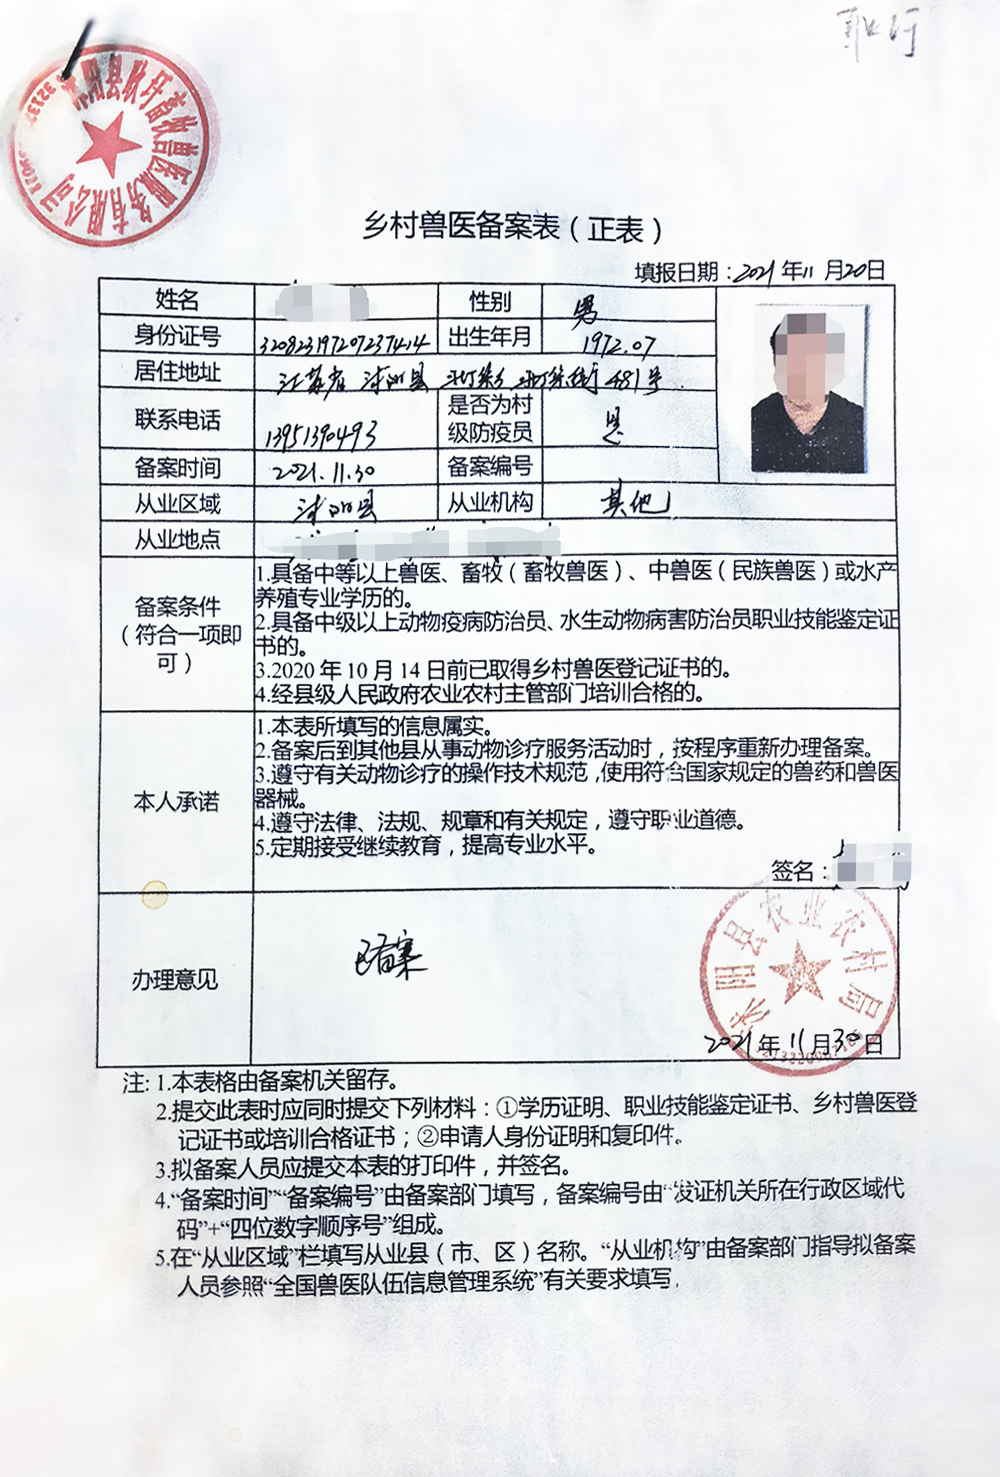 乡村兽医备案表（正表）
填报日期：2021年11月20日
姓名 性别 男
身份证号 320823197207237414 出生年月 1972.07
居住地址 江苏省 沭阳县 481号
联系电话 13951390493 是否为村级防疫员 是
备案时间 2021.11.30 备案编号
从业区域 沭阳县 从业机构 其他
从业地点
备案条件
（符合一项即
可）
1.具备中等以上兽医、畜牧（畜牧兽医）、中兽医（民族兽医）或水产
养殖专业学历的。
2.具备中级以上动物疫病防治员、水生动物病害防治员职业技能鉴定证
书的。
3.2020年10月14日前已取得乡村兽医登记证书的。
4.经县级人民政府农业农村主管部门培训合格的。
本人承诺
1.本表所填写的信息属实。
2.备案后到其他县从事动物诊疗服务活动时，按程序重新办理备案。
3.遵守有关动物诊疗的操作技术规范，使用符合国家规定的兽药和兽医
器械。
4.遵守法律、法规、规章和有关规定，遵守职业道德。
5.定期接受继续教育，提高专业水平。
签名：
办理意见
已备案
沭阳县农业农村局
2021年11月30日
注: 1.本表格由备案机关留存。
2.提交此表时应同时提交下列材料：①学历证明、职业技能鉴定证书、乡村兽医登
记证书或培训合格证书；②申请人身份证明和复印件。
3.拟备案人员应提交本表的打印件，并签名。
4.“备案时间”“备案编号”由备案部门填写，备案编号由“发证机关所在行政区域代
码”+“四位数字顺序号”组成。
5.在“从业区域”栏填写从业县（市、区）名称。“从业机构”由备案部门指导拟备案
人员参照“全国兽医队伍信息管理系统”有关要求填写.